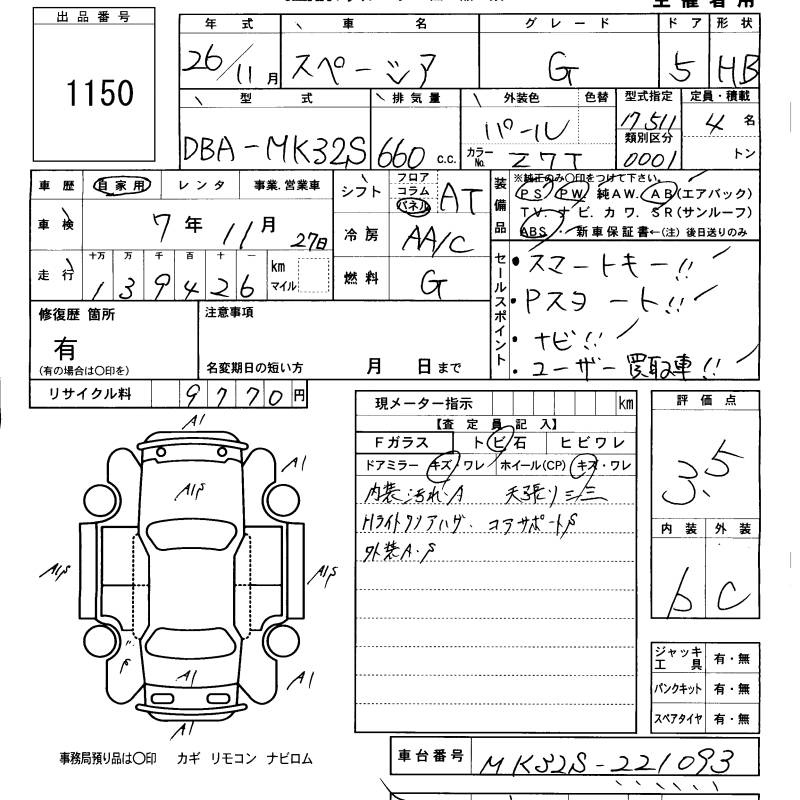 出品番号
1150
年式 車名 グレード ドア 形状
26/11月 スペーシア G 5 HB
型式 排気量 外装色 色替 型式指定 定員・積載
DBA-MK32S 660 c.c. パール 17511 4名
類別区分
カラーNo. Z7T 0001 トン
車歴 自家用 レンタ 事業.営業車
シフト フロア コラム パネル AT
装備品
※純正のみ○印をつけて下さい。
PS PW 純AW. AB(エアバック)
TV. ナビ. カワ. SR(サンルーフ)
ABS ・ 新車保証書←(注) 後日送りのみ
車検 7年11月27日
冷房 AA/C
走行 十万 万 千 百 十 一 km マイル
139426
燃料 G
セールスポイント
・スマートキー!!
・Pスタート!!
・ナビ!!
・ユーザー買取車!!
修復歴 箇所
有
(有の場合は○印を)
注意事項
名変期日の短い方 月 日まで
リサイクル料 9770円
現メーター指示 km
【査定員記入】
Fガラス トビ石 ヒビワレ
ドアミラー キズ・ワレ ホイール(CP) キズ・ワレ
内装汚れ・A 天張りシミ
Hライト コアサポートS
外装A・S
評価点
3.5
内装 外装
b C
ジャッキ工具 有・無
パンクキット 有・無
スペアタイヤ 有・無
A1
A1
A1S
A1S
A1S
A1
A1
A1
事務局預り品は○印 カギ リモコン ナビロム
車台番号 MK32S-221093